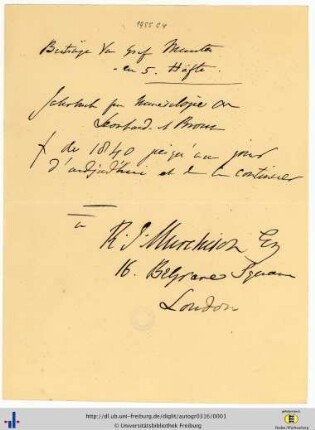 Beiträge Von Graf Munster
en 5. Häfte
Jahrbuch fur Mineralogie von
Leonhard et Bronn
de 1840 jusqu'au jour
d'aujourd'hui et de continuer
a
R. I. Murchison Esq
16. Belgrave Square
London
http://dl.ub.uni-freiburg.de/diglit/autogr0336/0001
© Universitätsbibliothek Freiburg